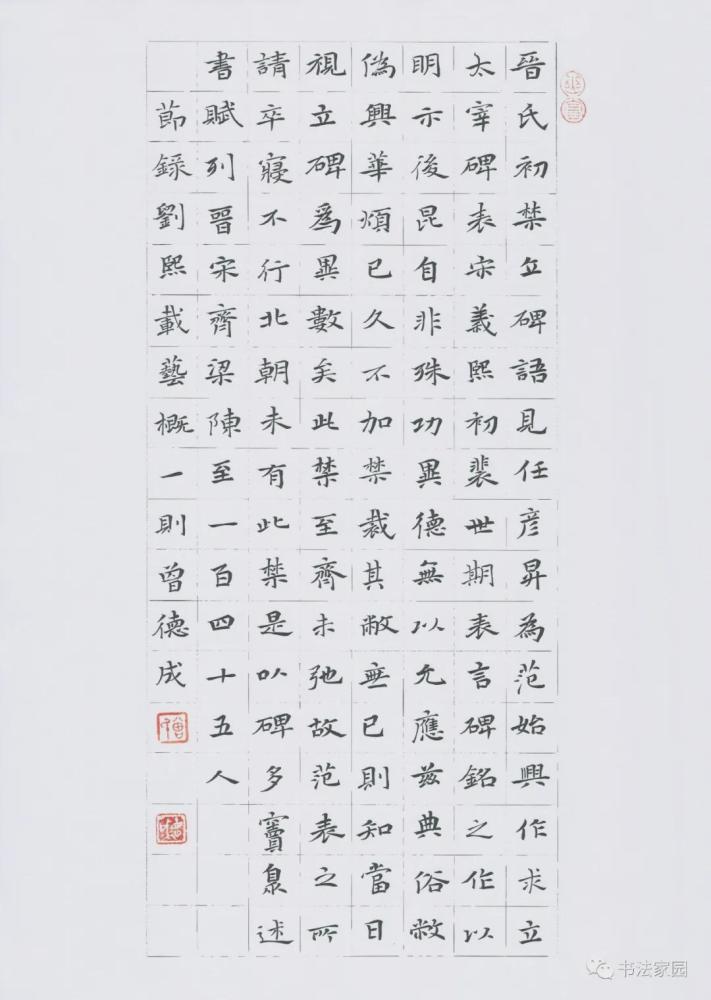 晉氏初禁立碑語見任彦昇為范始興作求立
太宰碑表宋義熙初裴世期表言碑銘之作以
明示後昆自非殊功異德無以允應兹典俗敝
偽興華煩已久不加禁裁其敝無已則知當日
視立碑爲異數矣此禁至齊未弛故范表之所
請卒寢不行北朝未有此禁是以碑多竇臮述
書賦列晉宋齊梁陳至一百四十五人
節錄劉熙載藝概一則曾德成
书法家园